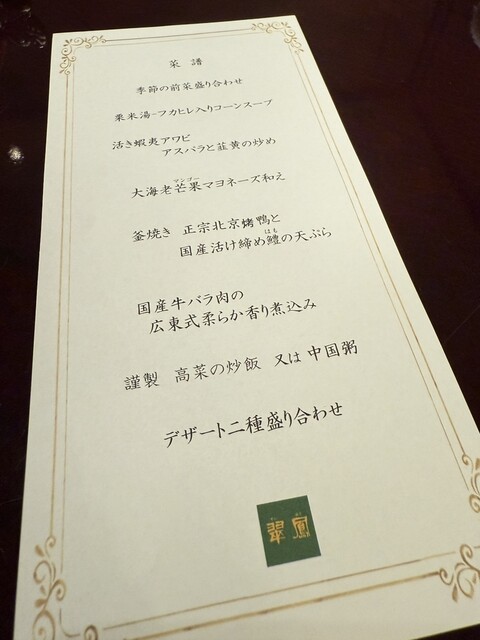 菜譜
季節の前菜盛り合わせ
粟米湯-フカヒレ入りコーンスープ
活き蝦夷アワビ
アスパラと韮黄の炒め
マンゴー
大海老芒果マヨネーズ和え
釜焼き 正宗北京烤鴨と
はも
国産活け締め鱧の天ぷら
国産牛バラ肉の
広東式柔らか香り煮込み
謹製 高菜の炒飯 又は 中国粥
デザート二種盛り合わせ
翠鳳